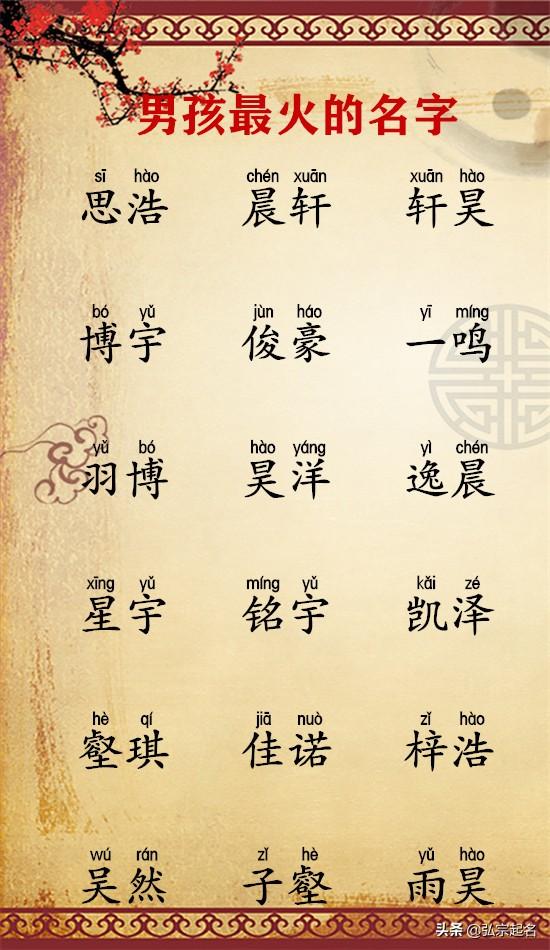 男孩最火的名字
sī hào chén xuān xuān hào
思浩 晨轩 轩昊
bó yǔ jùn háo yī míng
博宇 俊豪 一鸣
yǔ bó hào yáng yì chén
羽博 昊洋 逸晨
xīng yǔ míng yǔ kǎi zé
星宇 铭宇 凯泽
hè qí jiā nuò zǐ hào
壑琪 佳诺 梓浩
wú rán zǐ hè yǔ hào
吴然 子壑 雨昊
头条 @弘宗起名